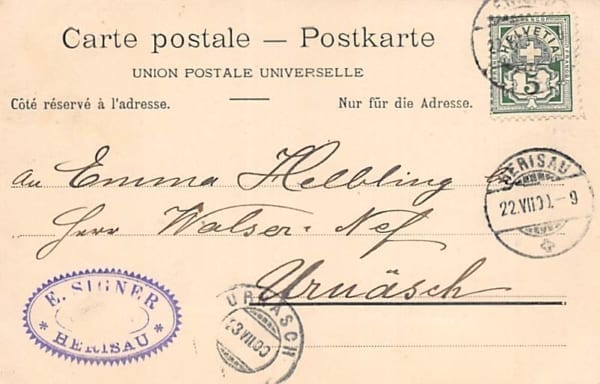 Carte postale — Postkarte
UNION POSTALE UNIVERSELLE
Côté réservé à l'adresse.
Nur für die Adresse.
HELVETIA
5
an Emma Helbling
Herr Walser-Nef
Urnäsch
HERISAU
22.VII.00.-9
E. SIGNER
* HERISAU *
URNÄSCH
23 VII 00